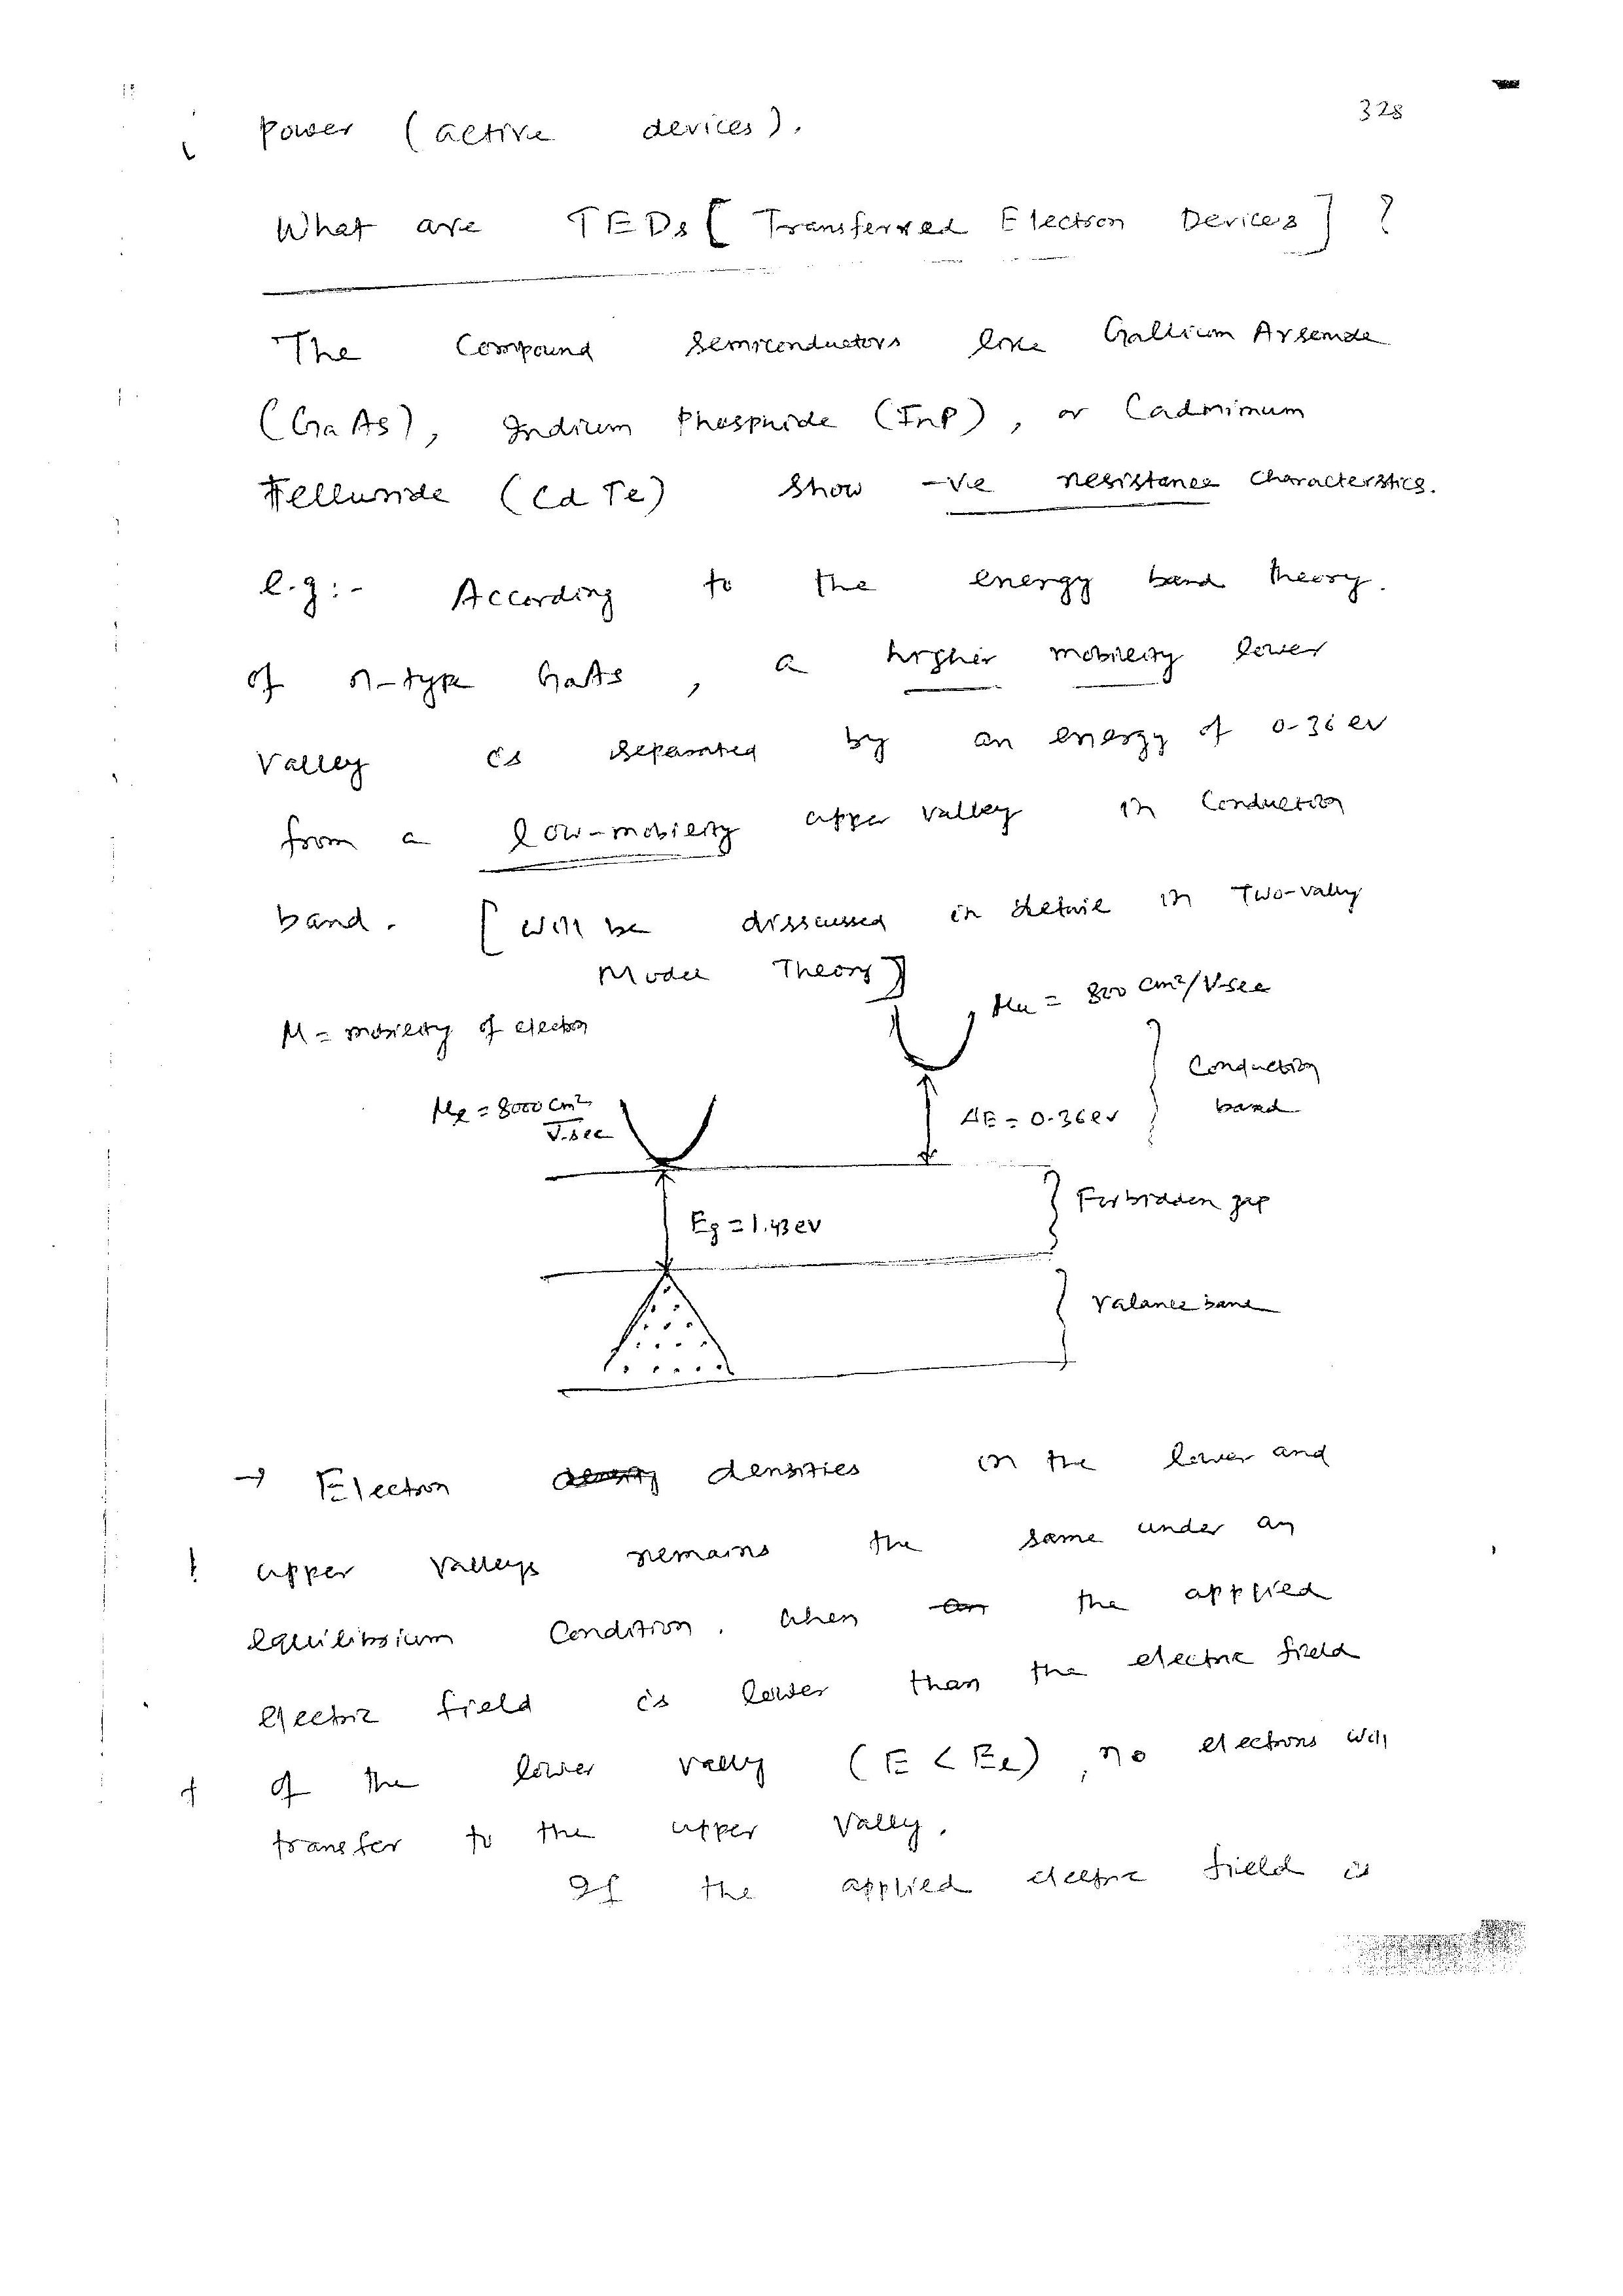 328
power (active devices).
What are TEDs [Transferred Electron Devices] ?
The Compound Semiconductors like Gallium Arsenide
(GaAs), Indium Phosphide (InP), or Cadmimum
Telluride (CdTe) show -ve resistance characterstics.
e.g:- According to the energy band theory.
of n-type GaAs, a higher mobility lower
valley is separated by an energy of 0.36 ev
from a low-mobility upper valley in Conduction
band. [will be disscussed in detail in Two-vally
Model Theory]
μu = 800 cm²/V-sec
μ = mobility of electon
Conduction
band
μl = 8000 cm²/V.sec
ΔE = 0.36ev
Forbidden gap
Eg = 1.43 ev
Valance band
→ Electron densities in the lower and
upper valleys remains the same under an
equilibrium Condition. When the applied
electric field is lower than the electric field
of the lower vally (E < El), no electrons will
transfer to the upper vally.
If the applied electric field is